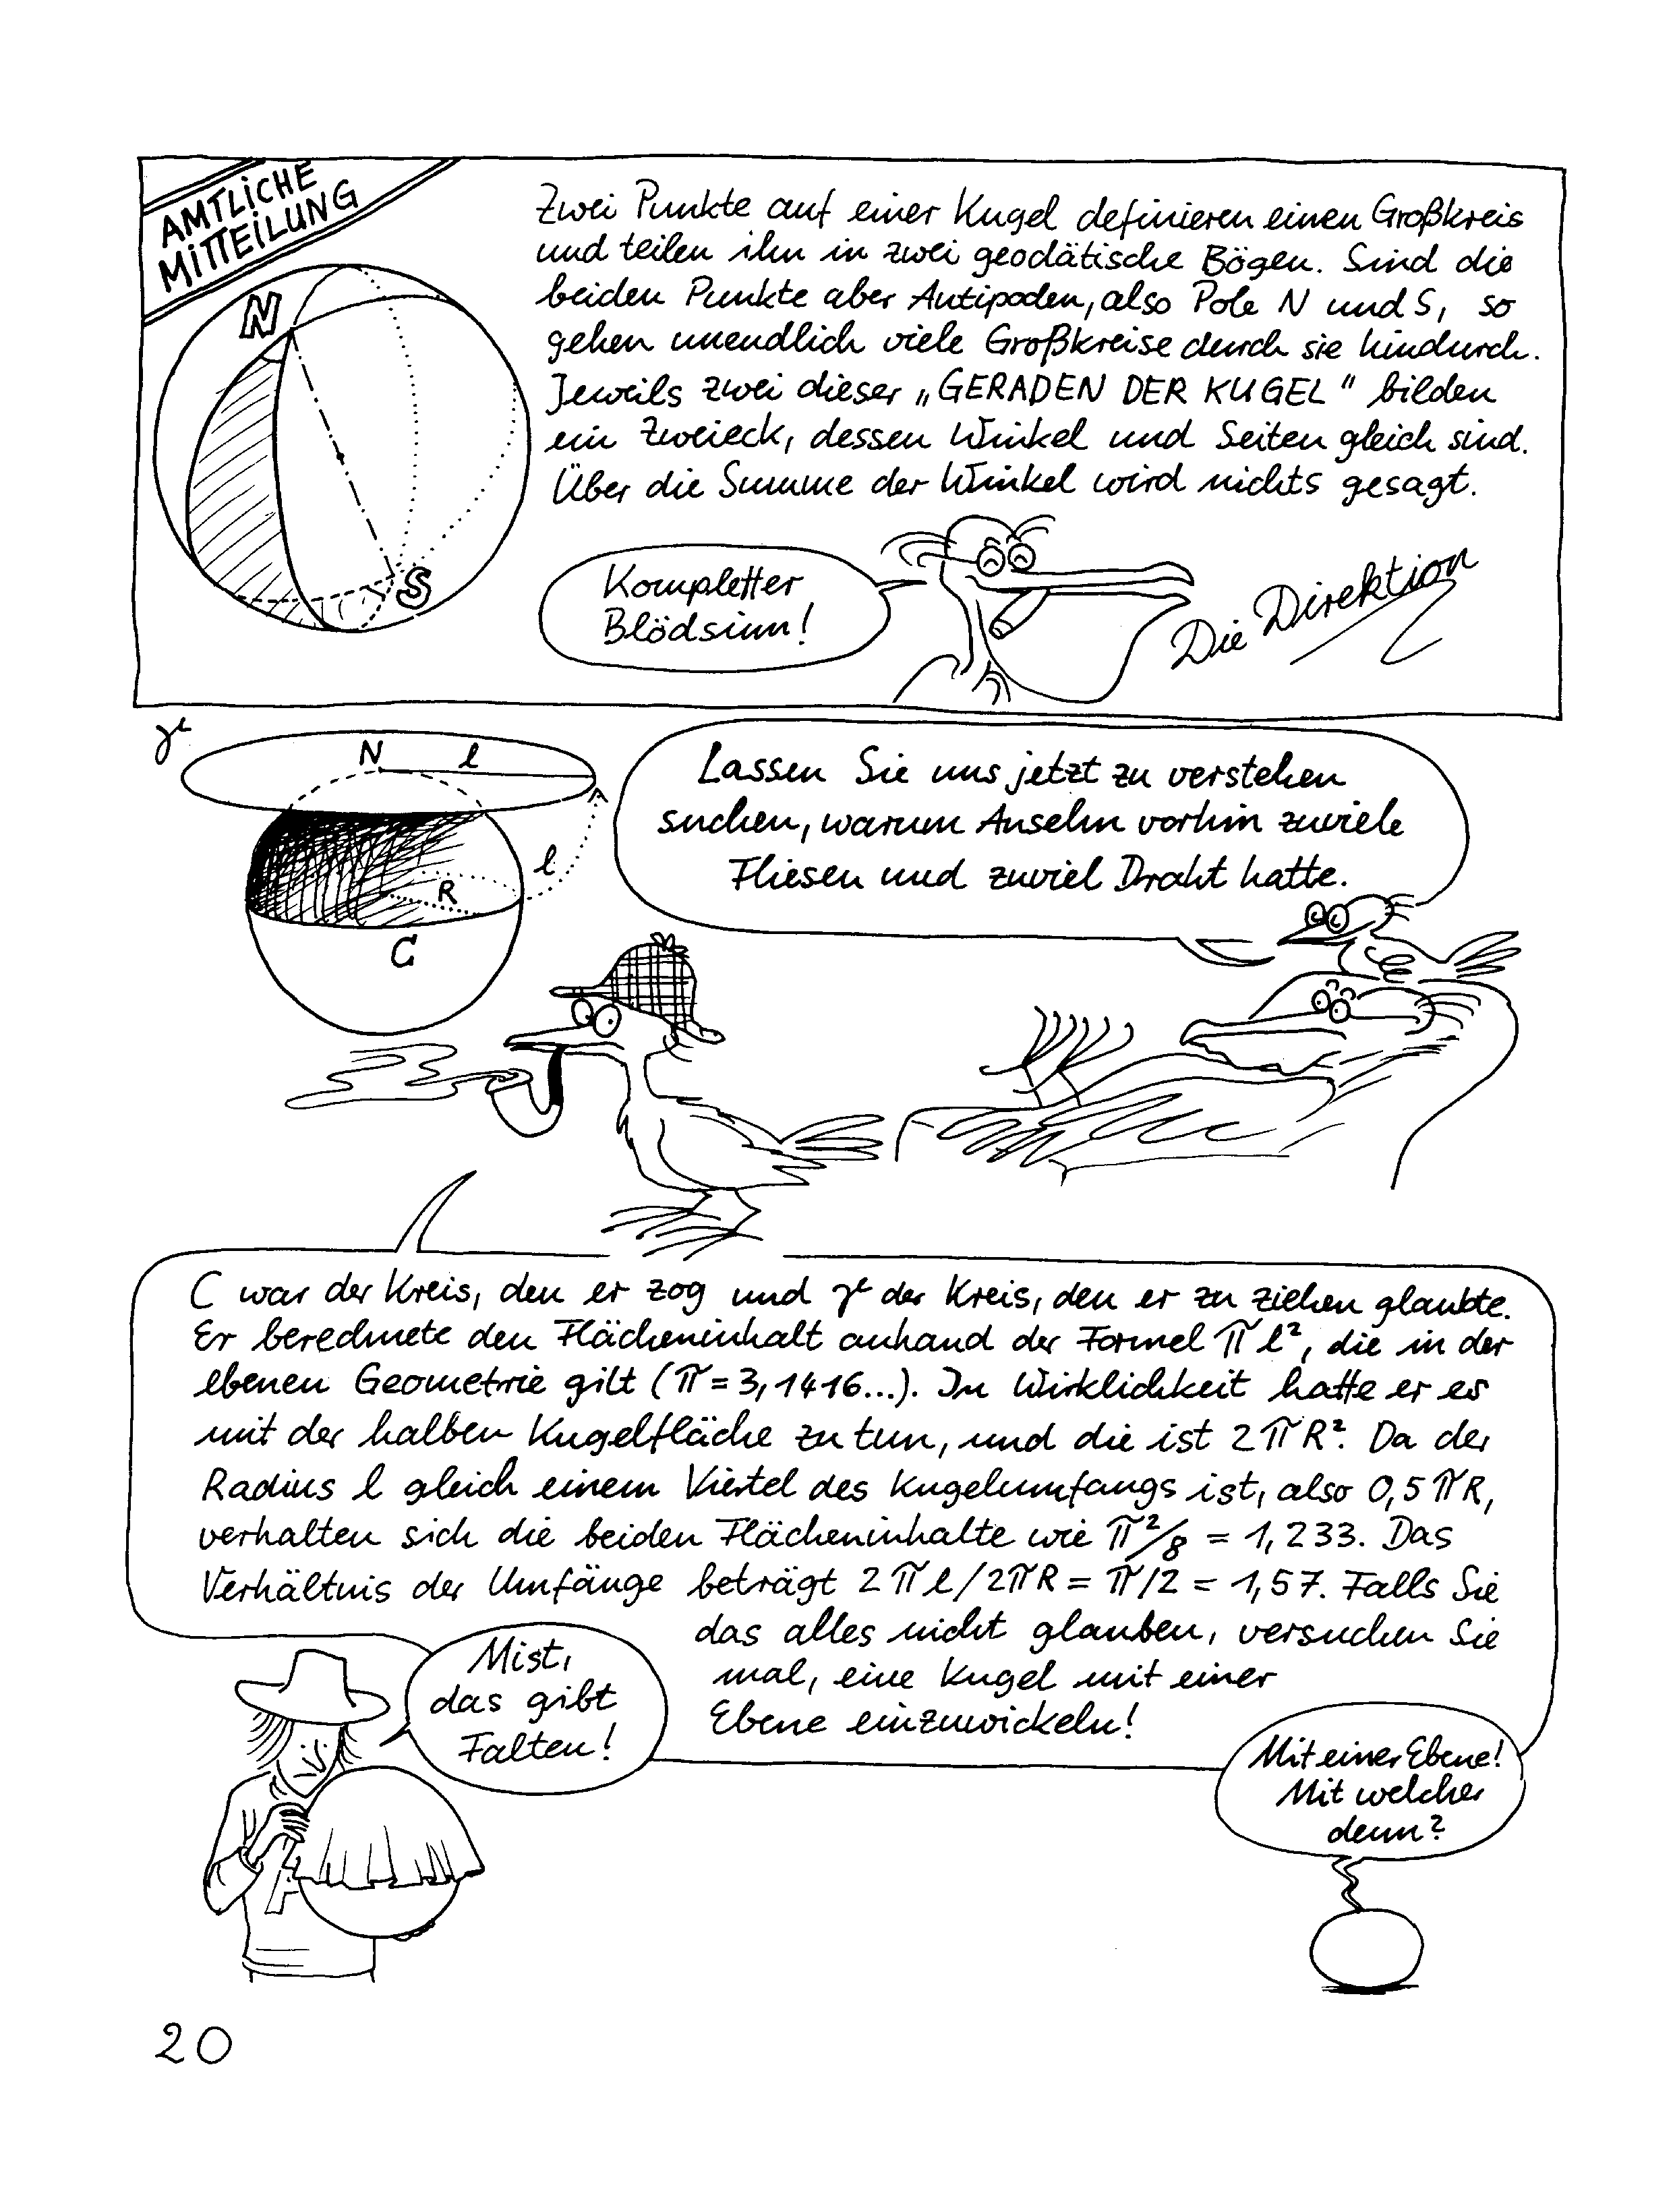 AMTLICHE
MITTEILUNG
Zwei Punkte auf einer Kugel definieren einen Großkreis
und teilen ihn in zwei geodätische Bögen. Sind die
beiden Punkte aber Antipoden, also Pole N und S, so
gehen unendlich viele Großkreise durch sie hindurch.
Jeweils zwei dieser „GERADEN DER KUGEL" bilden
ein Zweieck, dessen Winkel und Seiten gleich sind.
Über die Summe der Winkel wird nichts gesagt.
N
S
Kompletter
Blödsinn!
Die Direktion
γ
N
l
l
R
C
Lassen Sie uns jetzt zu verstehen
suchen, warum Anselm vorhin zuviele
Fliesen und zuviel Draht hatte.
C war der Kreis, den er zog und γ der Kreis, den er zu ziehen glaubte.
Er berechnete den Flächeninhalt anhand der Formel π l², die in der
ebenen Geometrie gilt (π = 3,1416...). In Wirklichkeit hatte er es
mit der halben Kugelfläche zu tun, und die ist 2πR². Da der
Radius l gleich einem Viertel des Kugelumfangs ist, also 0,5πR,
verhalten sich die beiden Flächeninhalte wie π²/8 = 1,233. Das
Verhältnis der Umfänge beträgt 2πl/2πR = π/2 = 1,57. Falls Sie
das alles nicht glauben, versuchen Sie
mal, eine Kugel mit einer
Ebene einzuwickeln!
Mist,
das gibt
Falten!
Mit einer Ebene!
Mit welcher
denn?
20